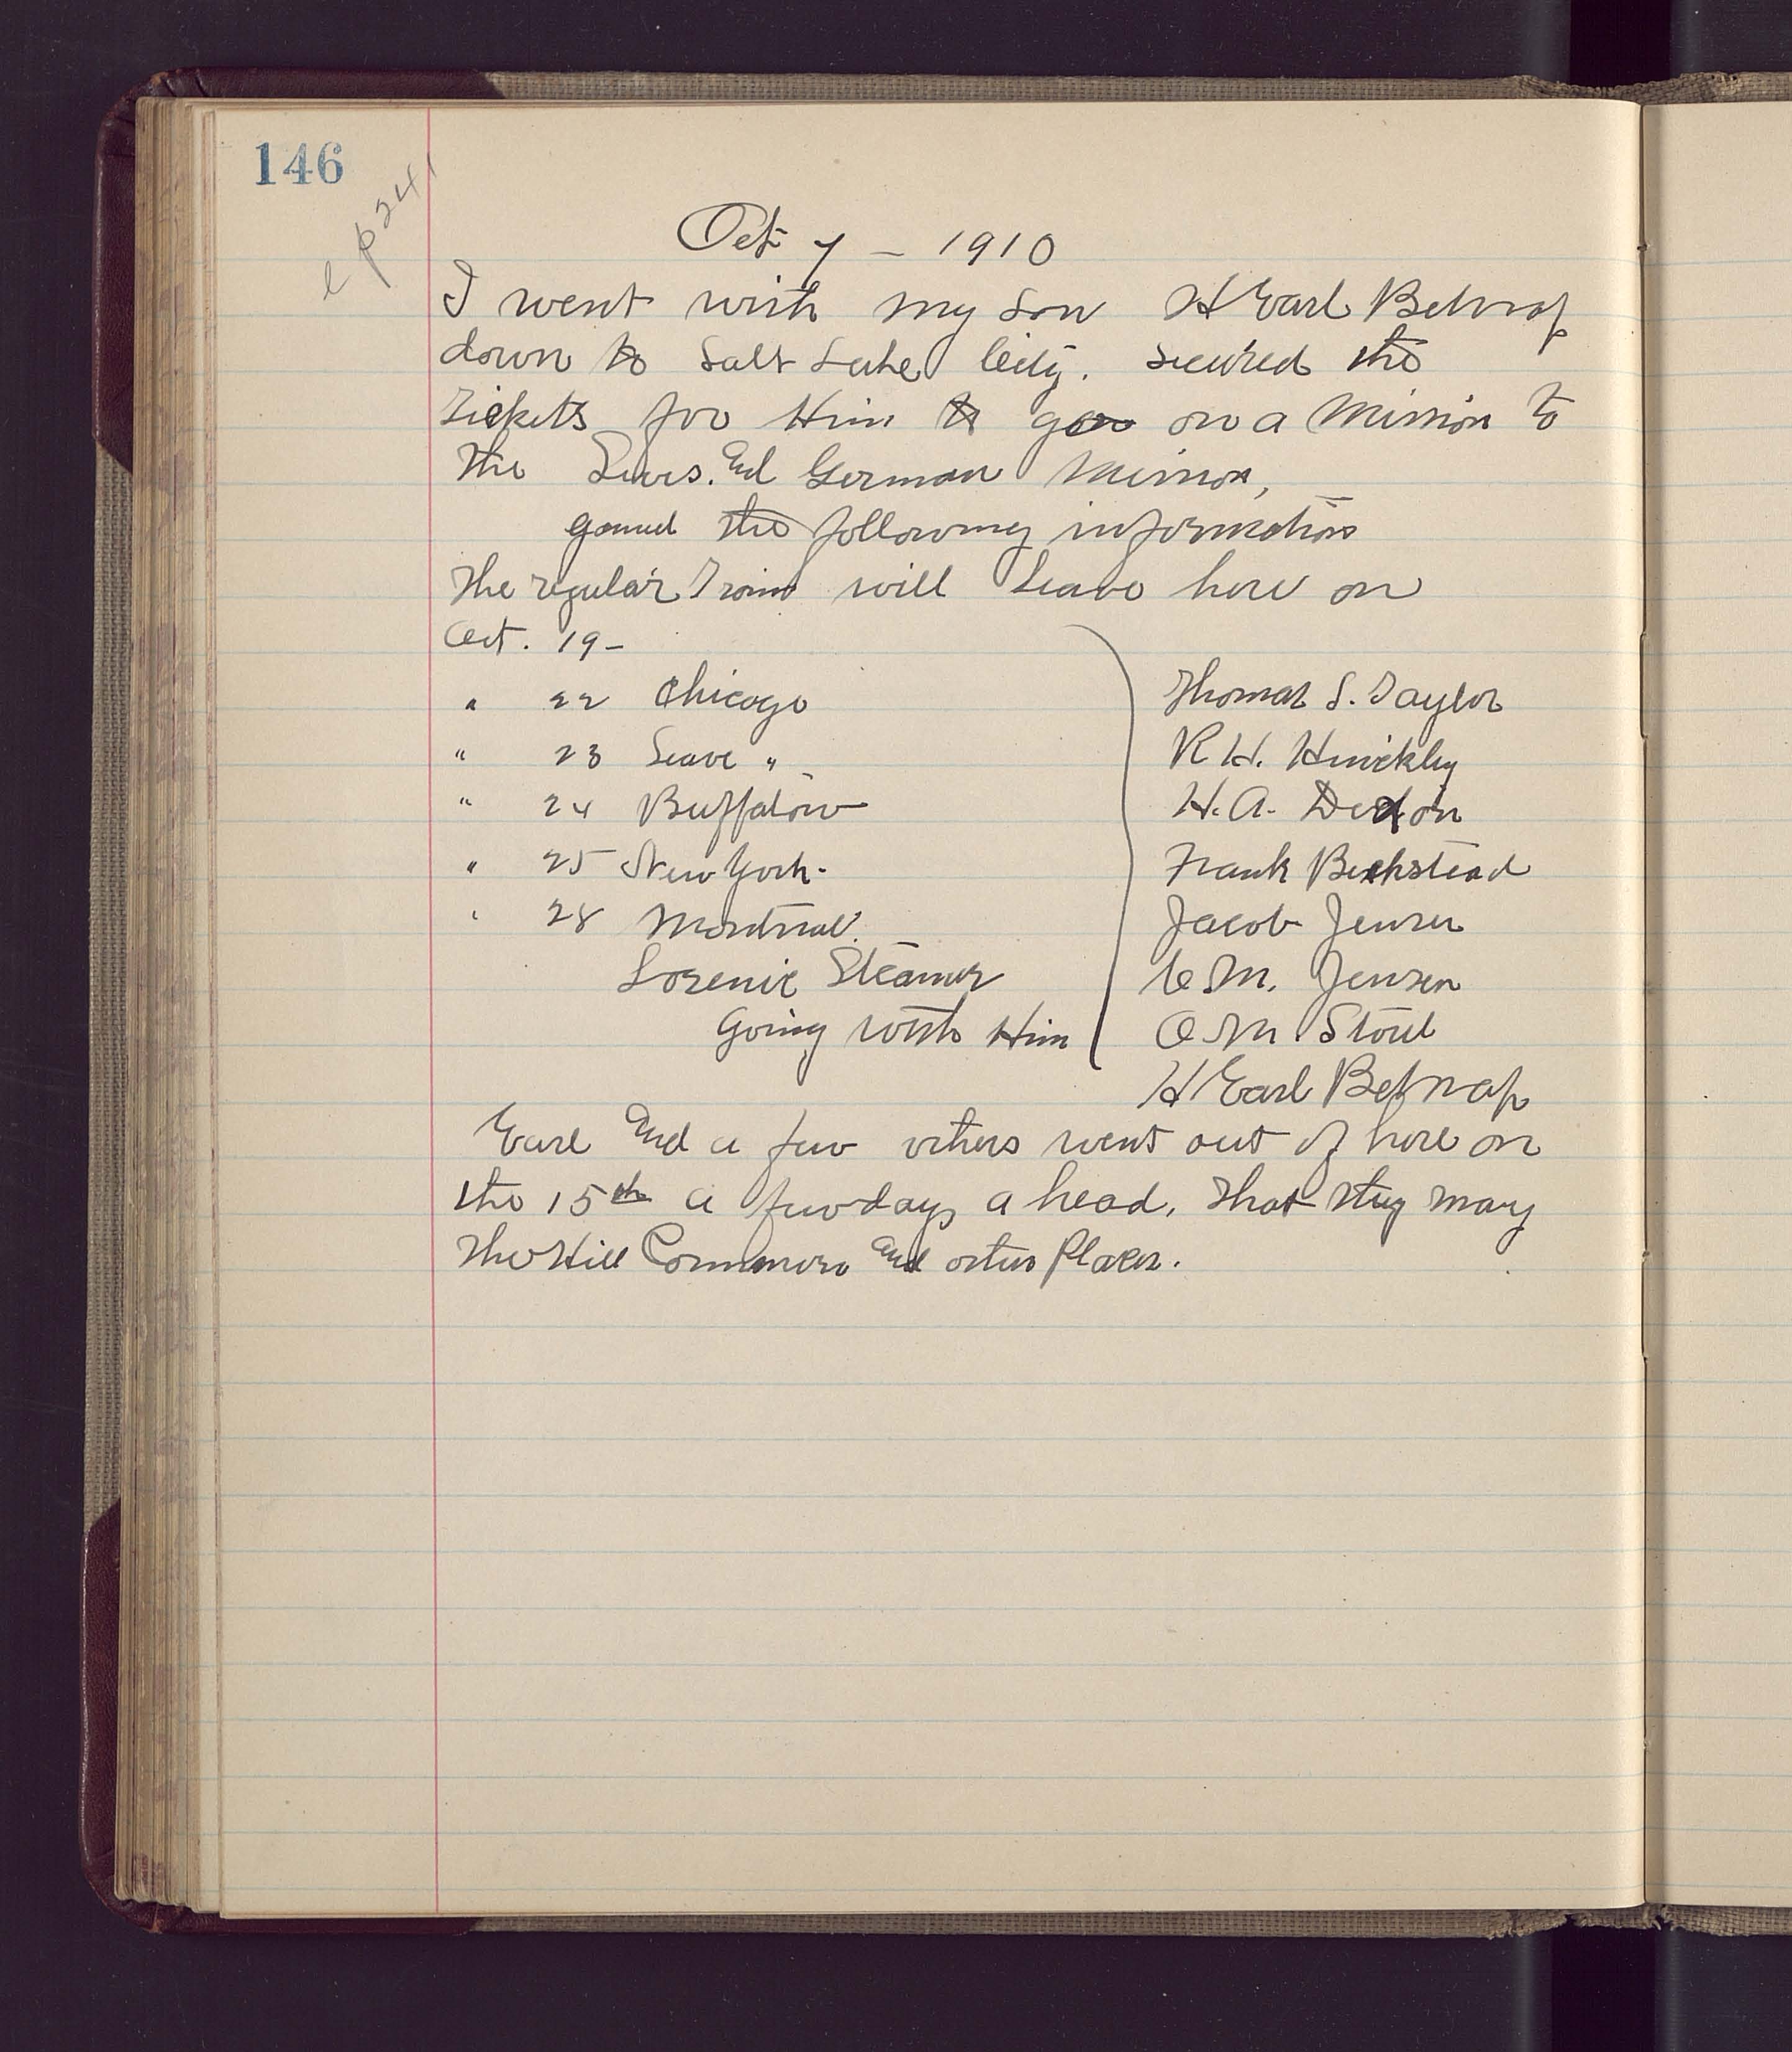 146
e p 241
Oct 7 - 1910
I went with my Son H Earl Belnap
down to Salt Lake City. Secured the
Tickets for Him to go on a Mission to
the Swis. and German Mission,
gained the following information
The regular Train will Leave here on
Oct. 19-
" 22 Chicago
" 23 Leave "
" 24 Buffalow
" 25 New York.
" 28 Montreal.
Steamer
Going with Him
Thomas S. Taylor
R H. Hinckley
H. A. Dixon
Frank Beckstead
Jacob Jensen
C M. Jensen
O M Stout
H Earl Belnap
Earl and a few others went out of here on
the 15th a few days a head. That they may
the Hill Commoro and other Places.